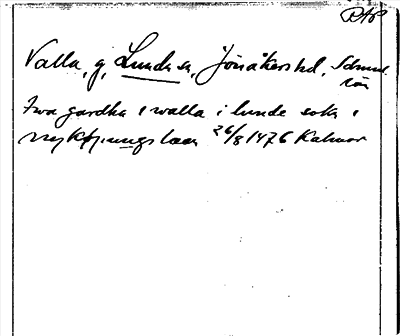 RAP
Valla, g, Lunda sn, Jönåkers hd, Söderm.
län
twa gardha i walla i lunde sokn i
nykøpungs læn 26/8 1476 Kalmar